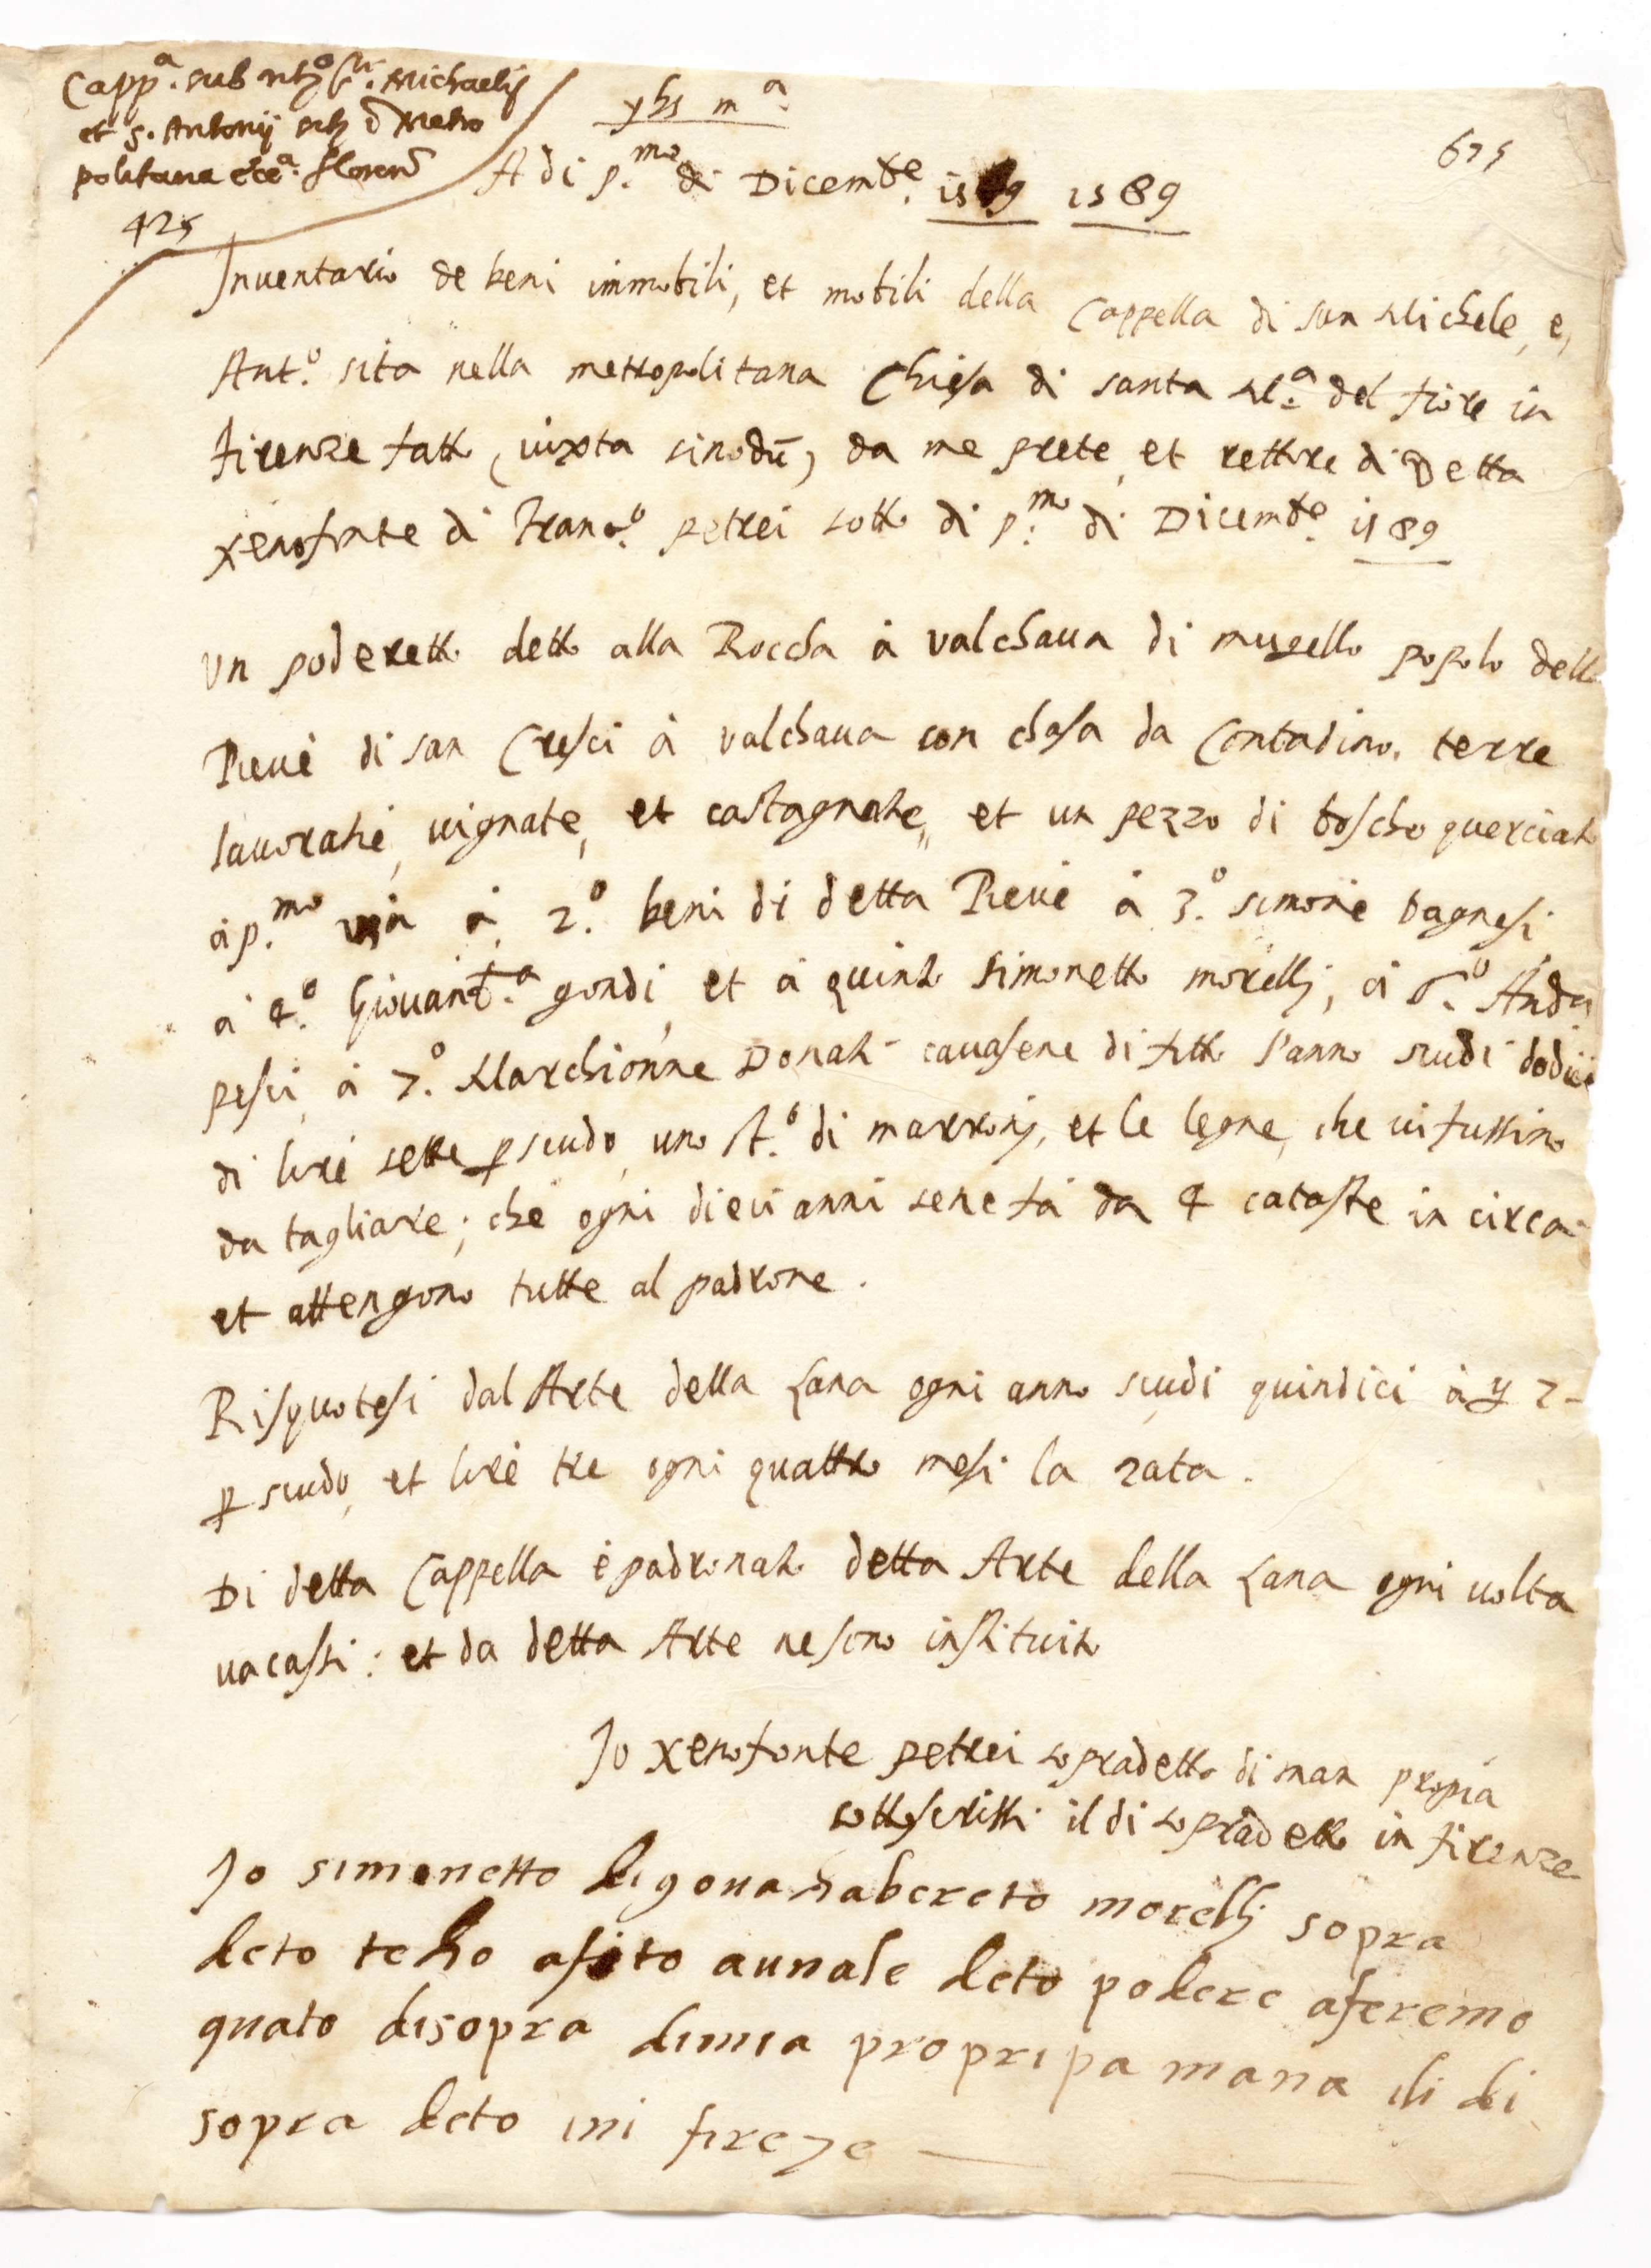 Capp.ª sub nō S.ti Michaelis
et S. Antonij sitę ī Metro
politana ecc.ª floren̄
425
yhs mª
675
A di p.mo di Dicemb.e 1589 1589
Inuentario de beni immobili, et mobili della Cappella di san Michele, e,
Ant.º sita nella metropolitana Chiesa di santa M.ª del fiore in
firenze fatto (iuxta sinodū) da me prete, et rettore di Detta
xenofonte di Franc.º petrei sotto di p.mo di Dicemb.e 1589
Un poderetto detto alla Roccha à valchaua di mugello popolo della
Pieue di san Cresci à valchaua con chasa da Contadino. terre
lauoratie, uignate, et castagnate, et un pezzo di boscho querciato
à p.mo via à 2.º beni di detta Pieue à 3.º simone bagnesi
à 4.º Giouanb.ª gondi, et à quinto simonetto morelli, à 6.º And.ª
pesci, à 7.º Marchionne Donati cauasene di fitto l'anno scudi dodici
di lire sette ꝑ scudo, uno st.º di marronj, et le legne, che ui fussino
da tagliare; che ogni dieci anni sene fa da 4 cataste in circa
et attengono tutte al padrone.
Risquotesi dal Arte della Lana ogni anno scudi quindici à ꝡ 7 -
ꝑ scudo, et lire tre ogni quattro mesi la rata.
Di detta Cappella è padronato detta Arte della Lana ogni uolta
uacassi: et da detta Arte ne sono instituito
Jo xenofonte petrei sopradetto di man propia
sottoscrissi il di sopradetto in firenze
Jo simonetto di gouanabereto morellj sopra
deto teho afito aunale deto podere aferemo
quato disopra dimia propripa mana ili di
sopra deto ini fireze